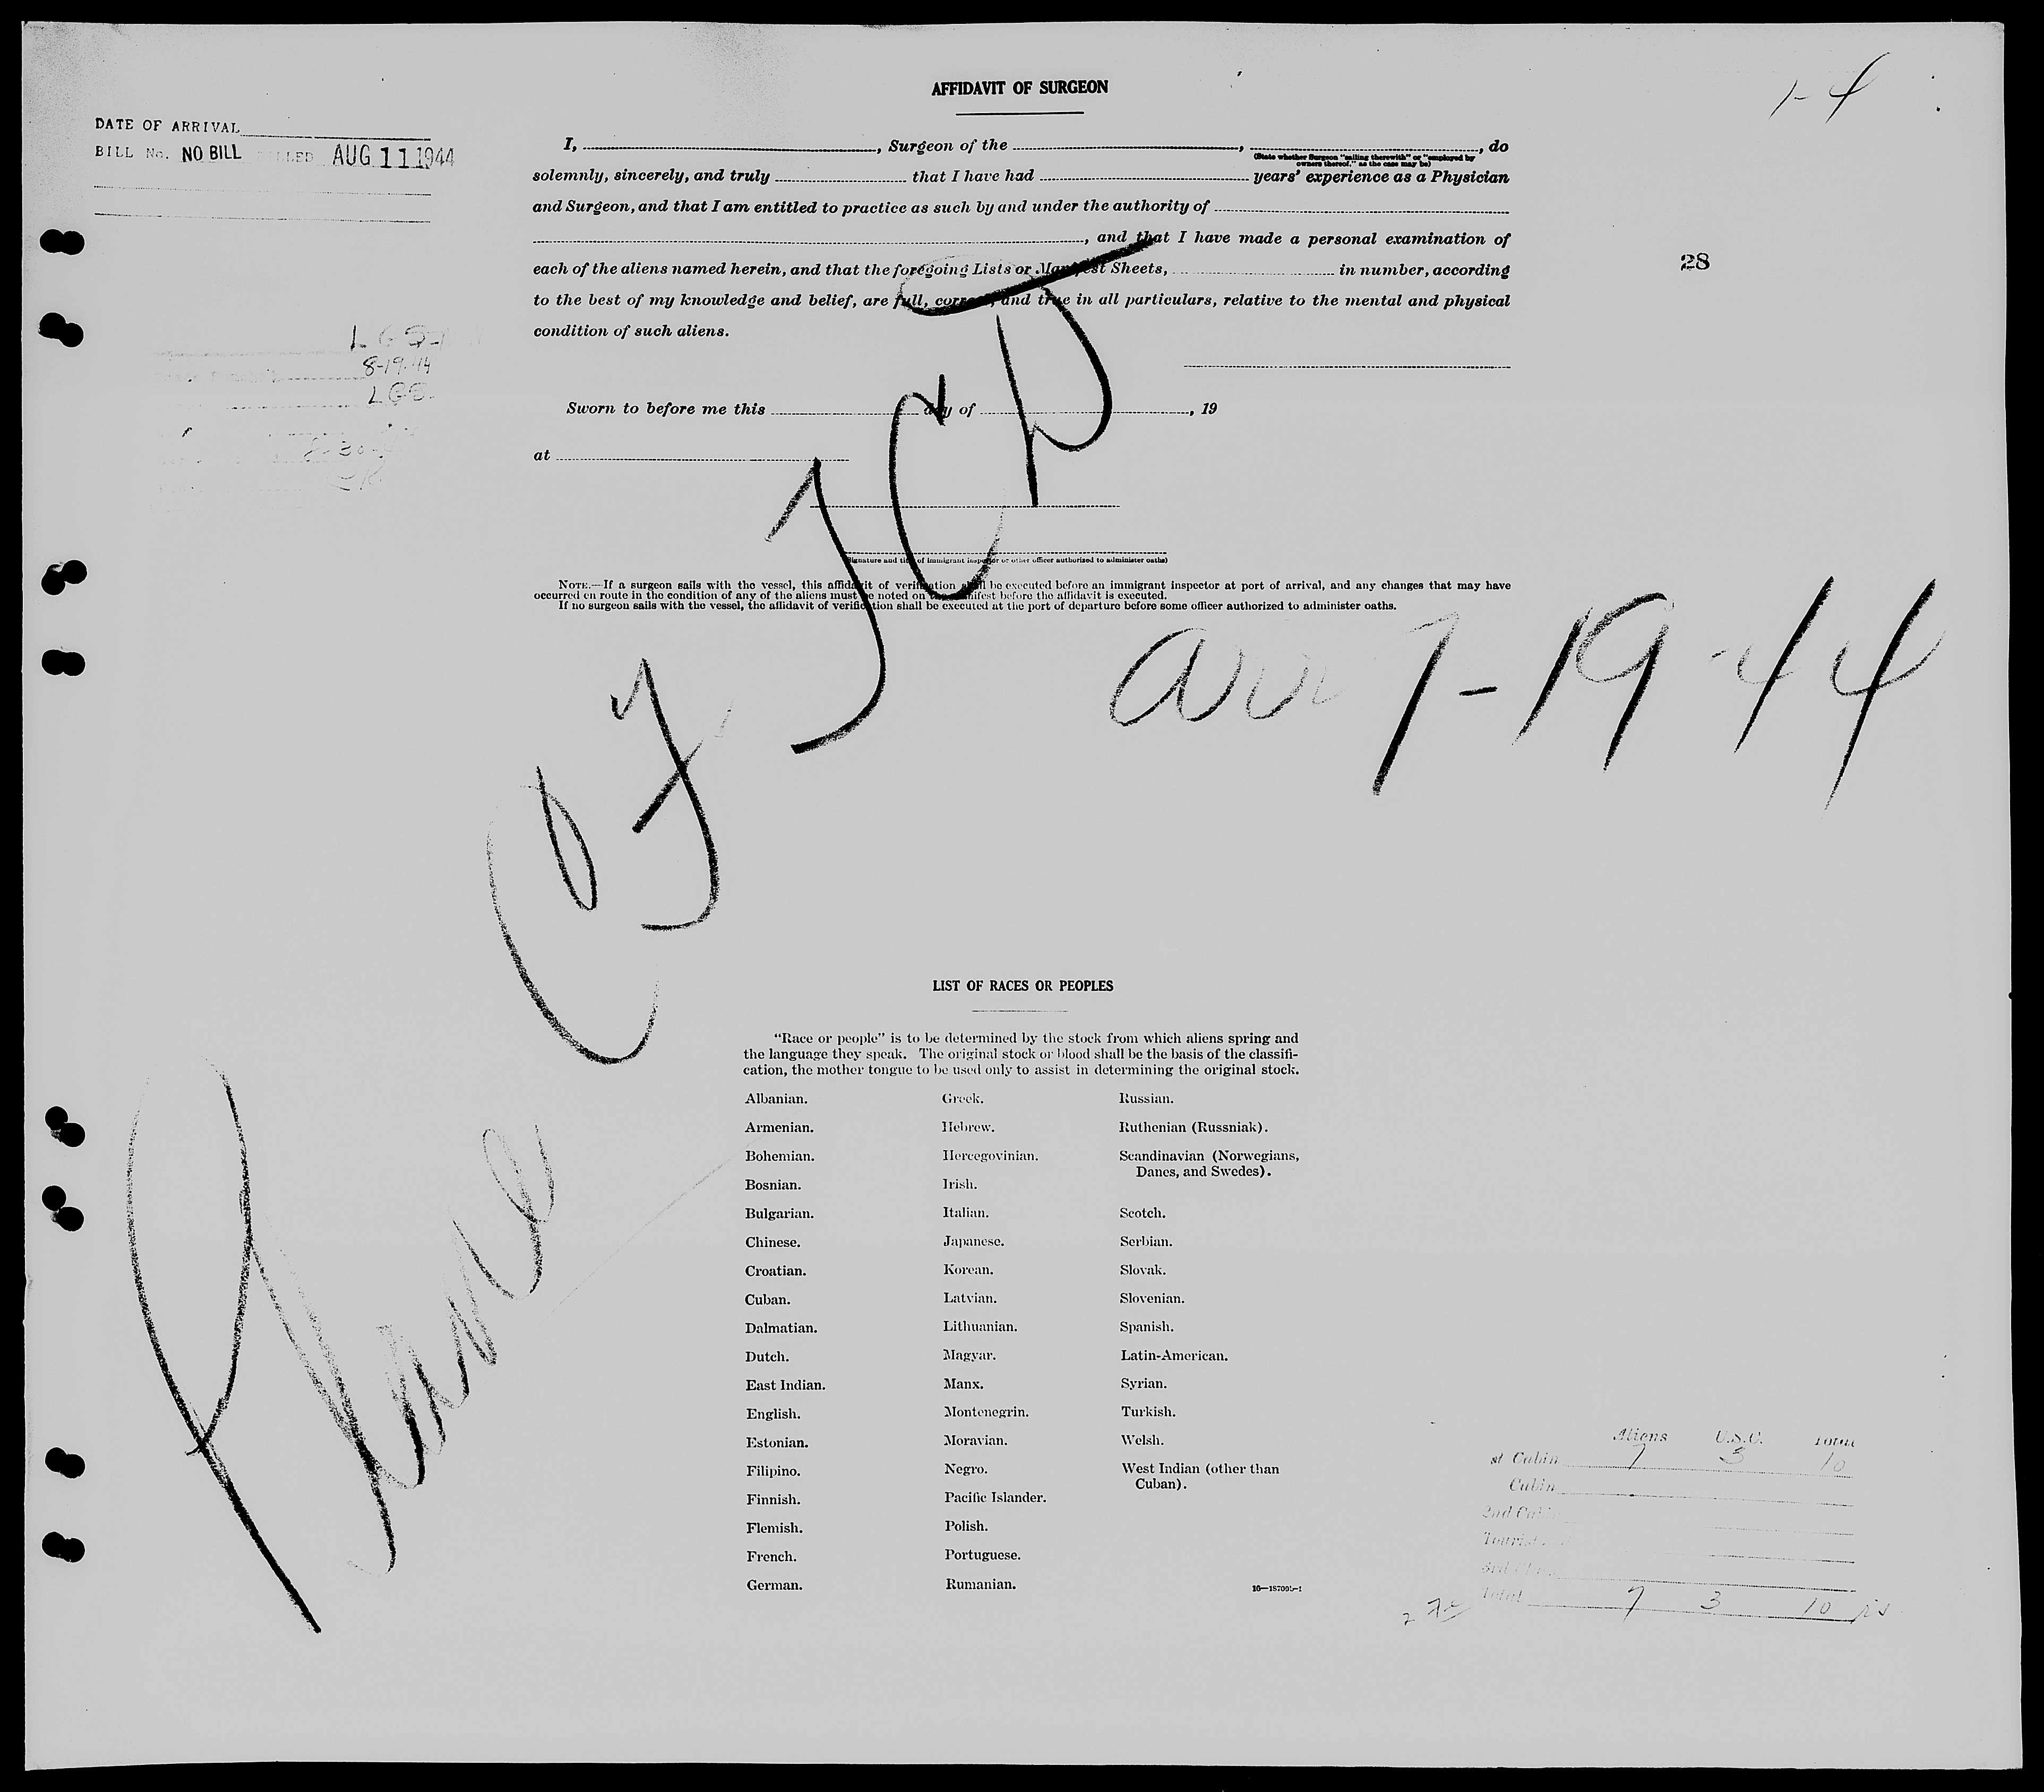 AFFIDAVIT OF SURGEON
1-4
DATE OF ARRIVAL
BILL No. NO BILL AUG 11 1944
I, , Surgeon of the , , do
(State whether Surgeon "sailing therewith" or "employed by owners thereof," as the case may be)
solemnly, sincerely, and truly that I have had years' experience as a Physician
and Surgeon, and that I am entitled to practice as such by and under the authority of
, and that I have made a personal examination of
each of the aliens named herein, and that the foregoing Lists or Manifest Sheets, in number, according
28
to the best of my knowledge and belief, are full, correct, and true in all particulars, relative to the mental and physical
condition of such aliens.
8-19-44
LGB
Sworn to before me this day of , 19
at
(Signature and title of immigrant inspector or other officer authorized to administer oaths)
NOTE.—If a surgeon sails with the vessel, this affidavit of verification shall be executed before an immigrant inspector at port of arrival, and any changes that may have
occurred en route in the condition of any of the aliens must be noted on the manifest before the affidavit is executed.
If no surgeon sails with the vessel, the affidavit of verification shall be executed at the port of departure before some officer authorized to administer oaths.
arr 7-19-44
Plane
LIST OF RACES OR PEOPLES
"Race or people" is to be determined by the stock from which aliens spring and
the language they speak. The original stock or blood shall be the basis of the classifi-
cation, the mother tongue to be used only to assist in determining the original stock.
Albanian. Greek. Russian.
Armenian. Hebrew. Ruthenian (Russniak).
Bohemian. Hercegovinian. Scandinavian (Norwegians,
Danes, and Swedes).
Bosnian. Irish.
Bulgarian. Italian. Scotch.
Chinese. Japanese. Serbian.
Croatian. Korean. Slovak.
Cuban. Latvian. Slovenian.
Dalmatian. Lithuanian. Spanish.
Dutch. Magyar. Latin-American.
East Indian. Manx. Syrian.
English. Montenegrin. Turkish.
Estonian. Moravian. Welsh.
Filipino. Negro. West Indian (other than
Cuban).
Finnish. Pacific Islander.
Flemish. Polish.
French. Portuguese.
German. Rumanian.
16—18709b-1
Aliens U.S.C. Total
st Cabin 7 3 10
Cabin
2nd Cab
Tourist
Total 7 3 10